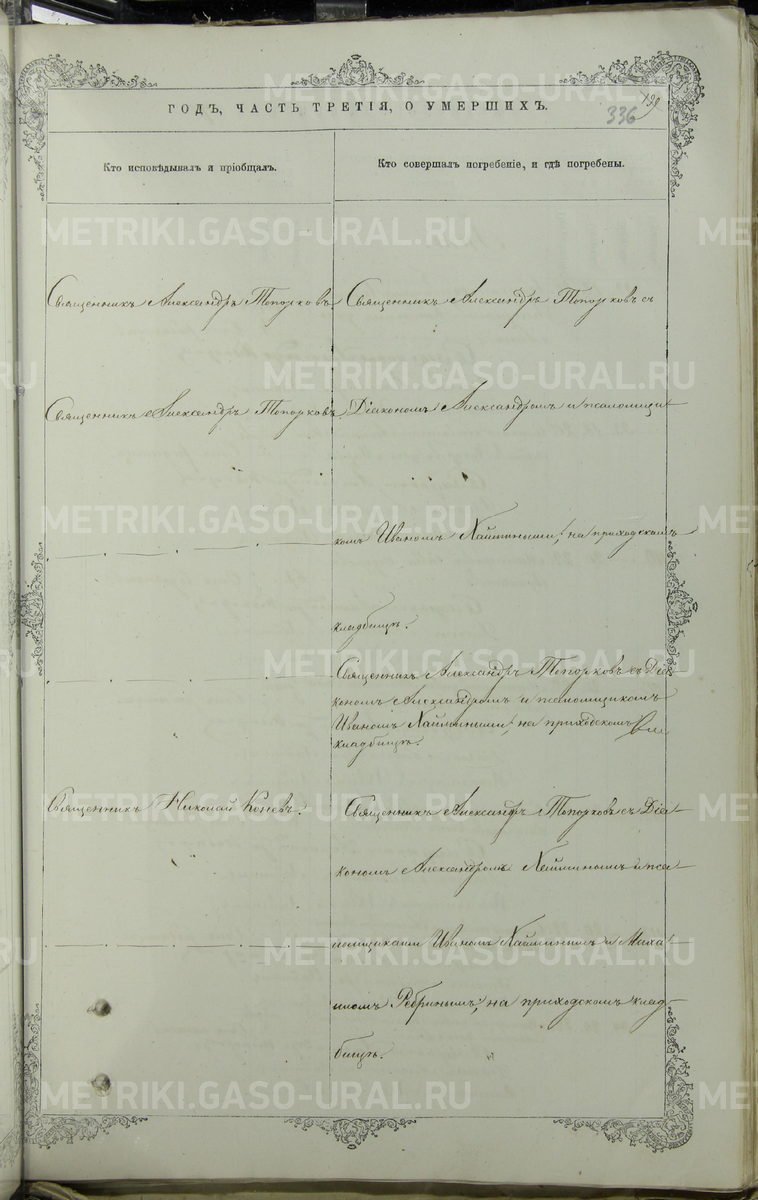 ГОДЪ, ЧАСТЬ ТРЕТІЯ, О УМЕРШИХЪ.
336
Кто исповѣдывалъ и пріобщалъ.
Кто совершалъ погребеніе, и гдѣ погребены.
Священникъ Александръ Топорковъ.
Священникъ Александръ Топорковъ съ
Священникъ Александръ Топорковъ.
Діакономъ Александромъ и псаломщи-
комъ Иваномъ Хаймиными, на приходскомъ
кладбищѣ.
Священникъ Александръ Топорковъ съ Діа-
кономъ Александромъ и псаломщикомъ
Иваномъ Хаймиными, на приходскомъ
кладбищѣ.
Священникъ Николай Коневъ.
Священникъ Александръ Топорковъ съ Діа-
кономъ Александромъ Хайминымъ и пса-
ломщиками Иваномъ Хайминымъ и Миха-
иломъ Ребринымъ, на приходскомъ клад-
бищѣ.
METRIKI.GASO-URAL.RU